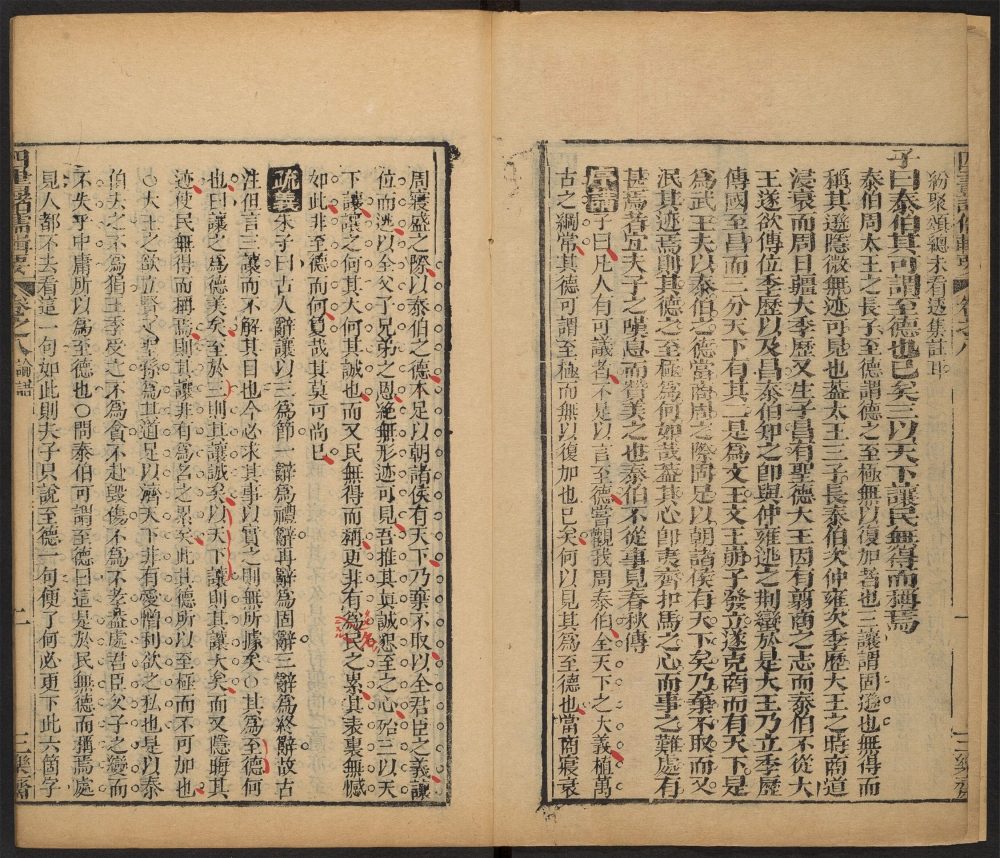 四書諸儒輯要 卷之八 一 三樂齋
紛聚頌總未有透集註耳
子曰泰伯其可謂至德也已矣三以天下讓民無得而稱焉
泰伯周太王之長子至德謂德之至極無以復加者也三讓謂固遜也無得而
稱其遜隱微無迹可見也蓋太王三子長泰伯次仲雍次季歷大王之時商道
浸衰而周日彊大季歷又生子昌有聖德大王因有翦商之志而泰伯不從大
王遂欲傳位季歷以及昌泰伯知之卽與仲雍逃之荆蠻於是大王乃立季歷
傳國至昌而三分天下有其二是爲文王文王崩子發立遂克商而有天下是
爲武王夫以泰伯之德當商周之際固足以朝諸侯有天下矣乃棄不取而又
泯其迹焉則其德之至極爲何如哉蓋其心卽夷齊扣馬之心而事之難處有
甚焉者宜夫子之嘆息而贊美之也泰伯不從事見春秋傳
子曰凡人有可議者不足以言至德嘗觀我周泰伯全天下之大義植萬
古之綱常其德可謂至極而無以復加也已矣何以見其爲至德也當商寖衰
周寖盛之際以泰伯之德本足以朝諸侯有天下乃棄不取以全君臣之義讓
位而逃以全父子兄弟之恩絶無形迹可見吾推其眞誠懇至之心殆三以天
下讓讓之何其大何其誠也而又民無得而稱更非有爲民之累其表裏無憾
如此非至德而何夐哉其莫可尚已
疏義朱子曰古人辭讓以三爲節一辭爲禮辭再辭爲固辭三辭爲終辭故古
注但言三讓而不解其目也今必求其事以實之則無所據矣○其爲至德何
也曰讓之爲德美矣至於三則其讓誠矣以天下讓則其讓大矣而又隱晦其
迹使民無得而稱焉則其讓非有爲名之累矣此其德所以至極而不可加也
○大王之欲立賢子聖孫爲其道足以濟天下非有愛憎利欲之私也是以泰
伯去之不爲狷王季受之不爲貪不赴毀傷不爲不孝蓋處君臣父子之變而
不失乎中庸所以爲至德也○問泰伯可謂至德曰這是於民無德而稱焉處
見人都不去看這一句如此則夫子只說至德一句便了何必更下此六箇字
四書諸儒輯要 卷之八 論語 二 三樂齋